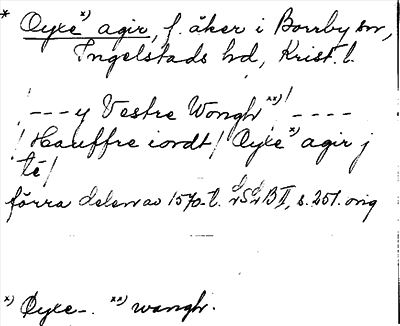 * Oyxe x) agir, f. åker i Borrby sn,
Ingelstads hd, Krist. l.
! - - - y Vestre Wongh xx)! - - - -
! Hauffre iordt! Oyxe x) agir j
té!
förra delen av 1570-t. B II, s. 251. orig
x) Oyxe-. xx) wangh.